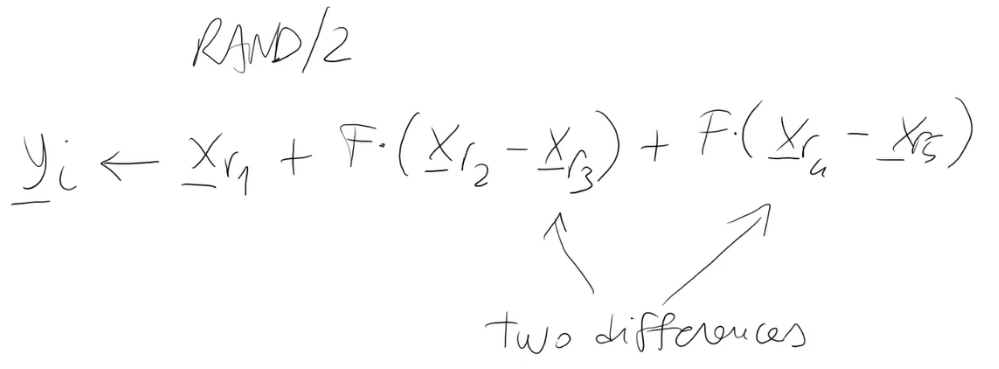 RAND/2
y_i ← x_r1 + F·(x_r2 - x_r3) + F·(x_r4 - x_r5)
two differences